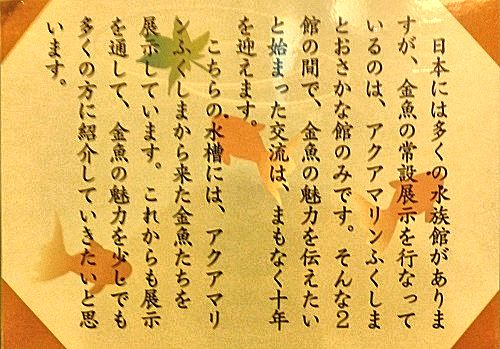 日本には多くの水族館がありま
すが、金魚の常設展示を行なって
いるのは、アクアマリンふくしま
とおさかな館のみです。そんな2
館の間で、金魚の魅力を伝えたい
と始まった交流は、まもなく十年
を迎えます。
こちらの水槽には、アクアマリ
ンふくしまから来た金魚たちを
展示しています。これからも展示
を通して、金魚の魅力を少しでも
多くの方に紹介していきたいと思
います。